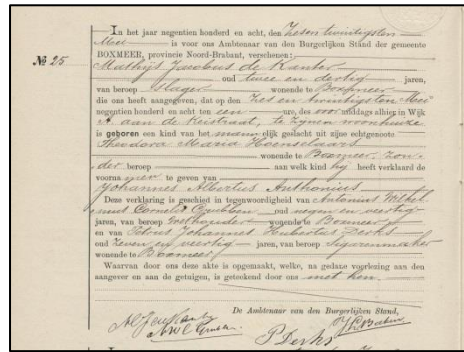 In het jaar negentien honderd en acht, den Zesen twintigsten
Mei is voor ons Ambtenaar van den Burgerlijken Stand der gemeente
BOXMEER, provincie Noord-Brabant, verschenen:
№ 25
Mathijs Jacobus de Kanter
oud twee en dertig jaren,
van beroep slager wonende te Boxmeer
die ons heeft aangegeven, dat op den Zes en twintigsten Mei
negentien honderd en acht ten een ure, des voor middags alhier in Wijk
A aan de te zijnen woonhuize
is geboren een kind van het mann elijk geslacht uit zijne echtgenoote
Theodora Maria Hoenselaars
wonende te Boxmeer, zon-
der beroep aan welk kind hij heeft verklaard de
voorna men te geven van
Johannes Albertus Anthonius
Deze verklaring is geschied in tegenwoordigheid van Antonius Wilhel-
mus Cornelis oud negen en veertig
jaren, van beroep wonende te Boxmeer
en van Petrus Johannes Hubertus Derks
oud zeven en veertig jaren, van beroep Sigarenmaker
wonende te Boxmeer
Waarvan door ons deze akte is opgemaakt, welke, na gedane voorlezing aan den
aangever en aan de getuigen, is geteekend door ons met hen.
De Ambtenaar van den Burgerlijken Stand,
P Derks